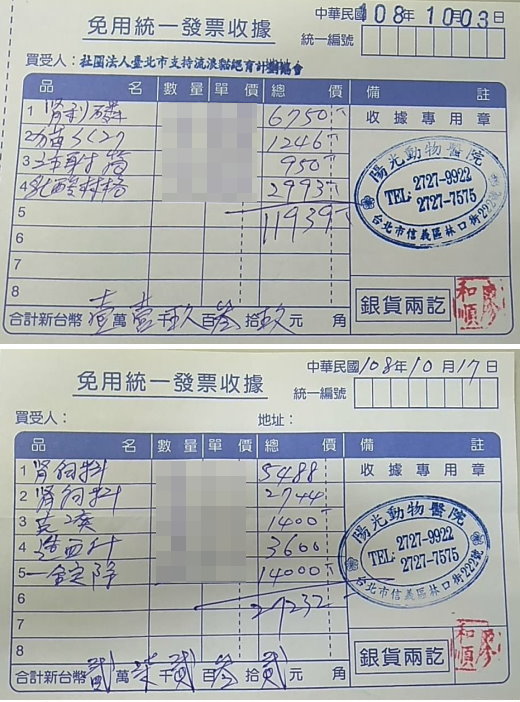 中華民國108年10月03日
免用統一發票收據
統一編號
買受人：社團法人臺北市支持流浪貓絕育計劃協會
品名 數量 單價 總價 備註
1 腎利磷 6750
2 1246
3 注射 950
4 乳酸林格 2993
5 11939
6
7
8
收據專用章
陽光動物醫院
TEL: 2727-9922
2727-7575
台北市信義區林口街222號
銀貨兩訖
廖和順
合計新台幣壹萬壹千玖百叁拾玖元 角
中華民國108年10月17日
免用統一發票收據
統一編號
買受人： 地址：
品名 數量 單價 總價 備註
1 腎飼料 5488
2 腎飼料 2744
3 1400
4 造血針 3600
5 一錠除 14000
6 27232
7
8
收據專用章
陽光動物醫院
TEL: 2727-9922
2727-7575
台北市信義區林口街222號
銀貨兩訖
廖和順
合計新台幣貳萬柒千貳百叁拾貳元 角